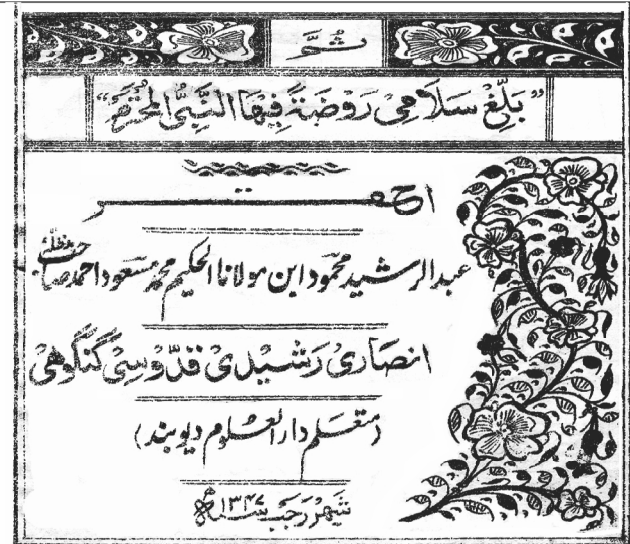 ثُمَّ
”بَلِّغْ سَلَامِیْ رَوْضَةً فِیْهَا النَّبِیُّ الْمُحْتَرَمْ“
احقر
عبدالرشید محمود ابن مولانا الحکیم محمد مسعود احمد صاحب مدظلہٗ
انصاری رشیدی قدّوسی گنگوھی
(متعلم دارالعلوم دیوبند)
شہر رجب سنہ ۱۳۴۷ھ